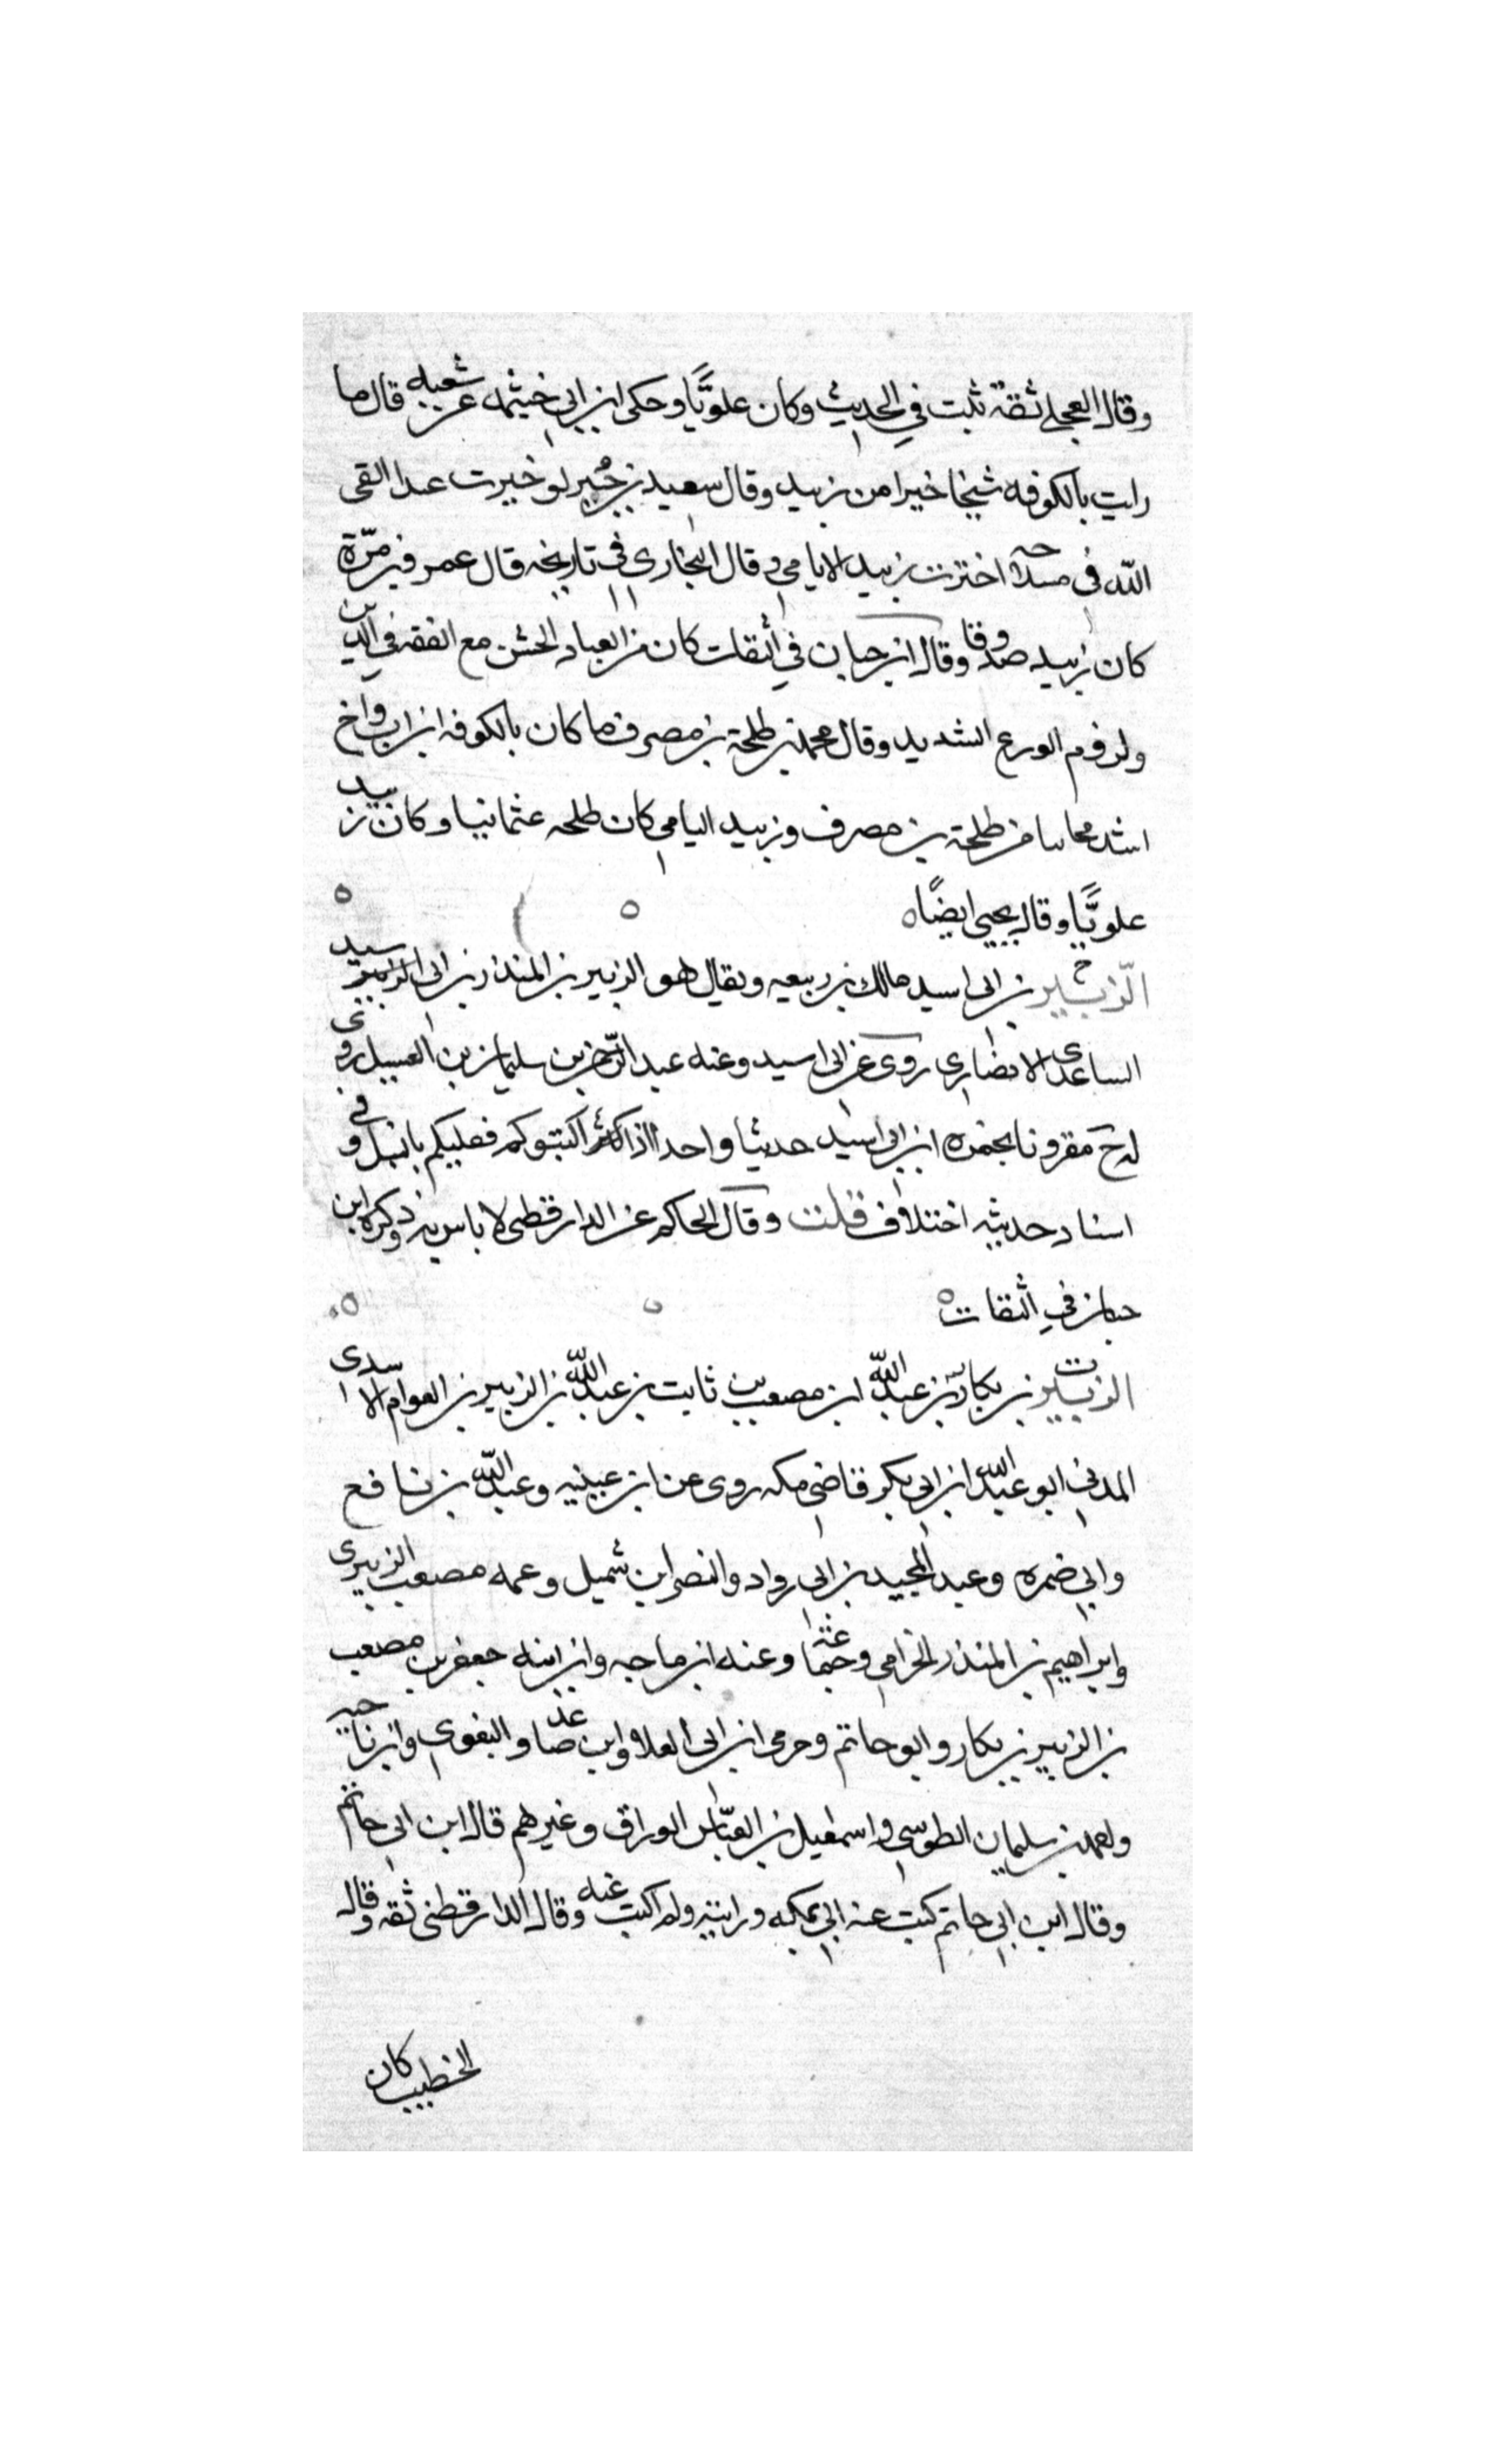 وقال العجلي ثقة ثبت في الحديث وكان علويًّا وحكى ابن ابي خيثمه عن شعبه قال ما
رايت بالكوفه شيخا خيرا من زبيد وقال سعيد بن جُبير لو خيرت عبدا القى
الله في مسلاخه اخترت زبيد الايامي وقال البخاري في تاريخه قال عمرو بن مرّة
كان زبيد صدوقا وقال ابن حبان في الثقات كان من العباد الخشن مع الفقه في الدين
ولزوم الورع الشديد وقال محمد بن طلحة بن مصرف ما كان بالكوفه ابن اب واخ
اشد مجانبا من طلحة بن مصرف وزبيد اليامي كان طلحه عثمانيا وكان زبيد
علويًّا وقال يحيى ايضًا ه
الزبير بن ابي اسيد مالك بن ربيعه ويقال هو الزبير بن المنذر بن ابي اسيد
الساعدي الانصاري روى عن ابي اسيد وعنه عبد الرحمن بن سليمان بن الغسيل روى
له خ مقرونا بحمزه ابن ابي اسيد حديثا واحدا اذا اكثبوكم فعليكم بالنبل وفي
اسناد حديثه اختلاف قلت وقال الحاكم عن الدارقطني لا باس به وذكره ابن
حبان في الثقات ه
الزبير بن بكار بن عبد الله ابن مصعب بن ثابت بن عبد الله بن الزبير بن العوام الاسدي
المدني ابو عبد الله ابن ابي بكر قاضي مكه روى عن ابن عيينه وعبد الله بن نافع
وابي ضمره وعبد المجيد بن ابي رواد والنضر ابن شميل وعمه مصعب الزبيري
وابراهيم بن المنذر الحزامي وجماعة وعنه ابن ماجه وابن ابنه جعفر بن مصعب
بن الزبير بن بكار وابو حاتم وحرمي ابن ابي العلا وابن صاعد والبغوي وابن ناجيه
واحمد بن سليمان الطوسي واسمعيل بن العبّاس الوراق وغيرهم قال ابن ابي حاتم
وقال ابن ابي حاتم كتب عنه ابي بمكه ورايته ولم اكتب عنه وقال الدارقطني ثقه وقال
الخطيب كان